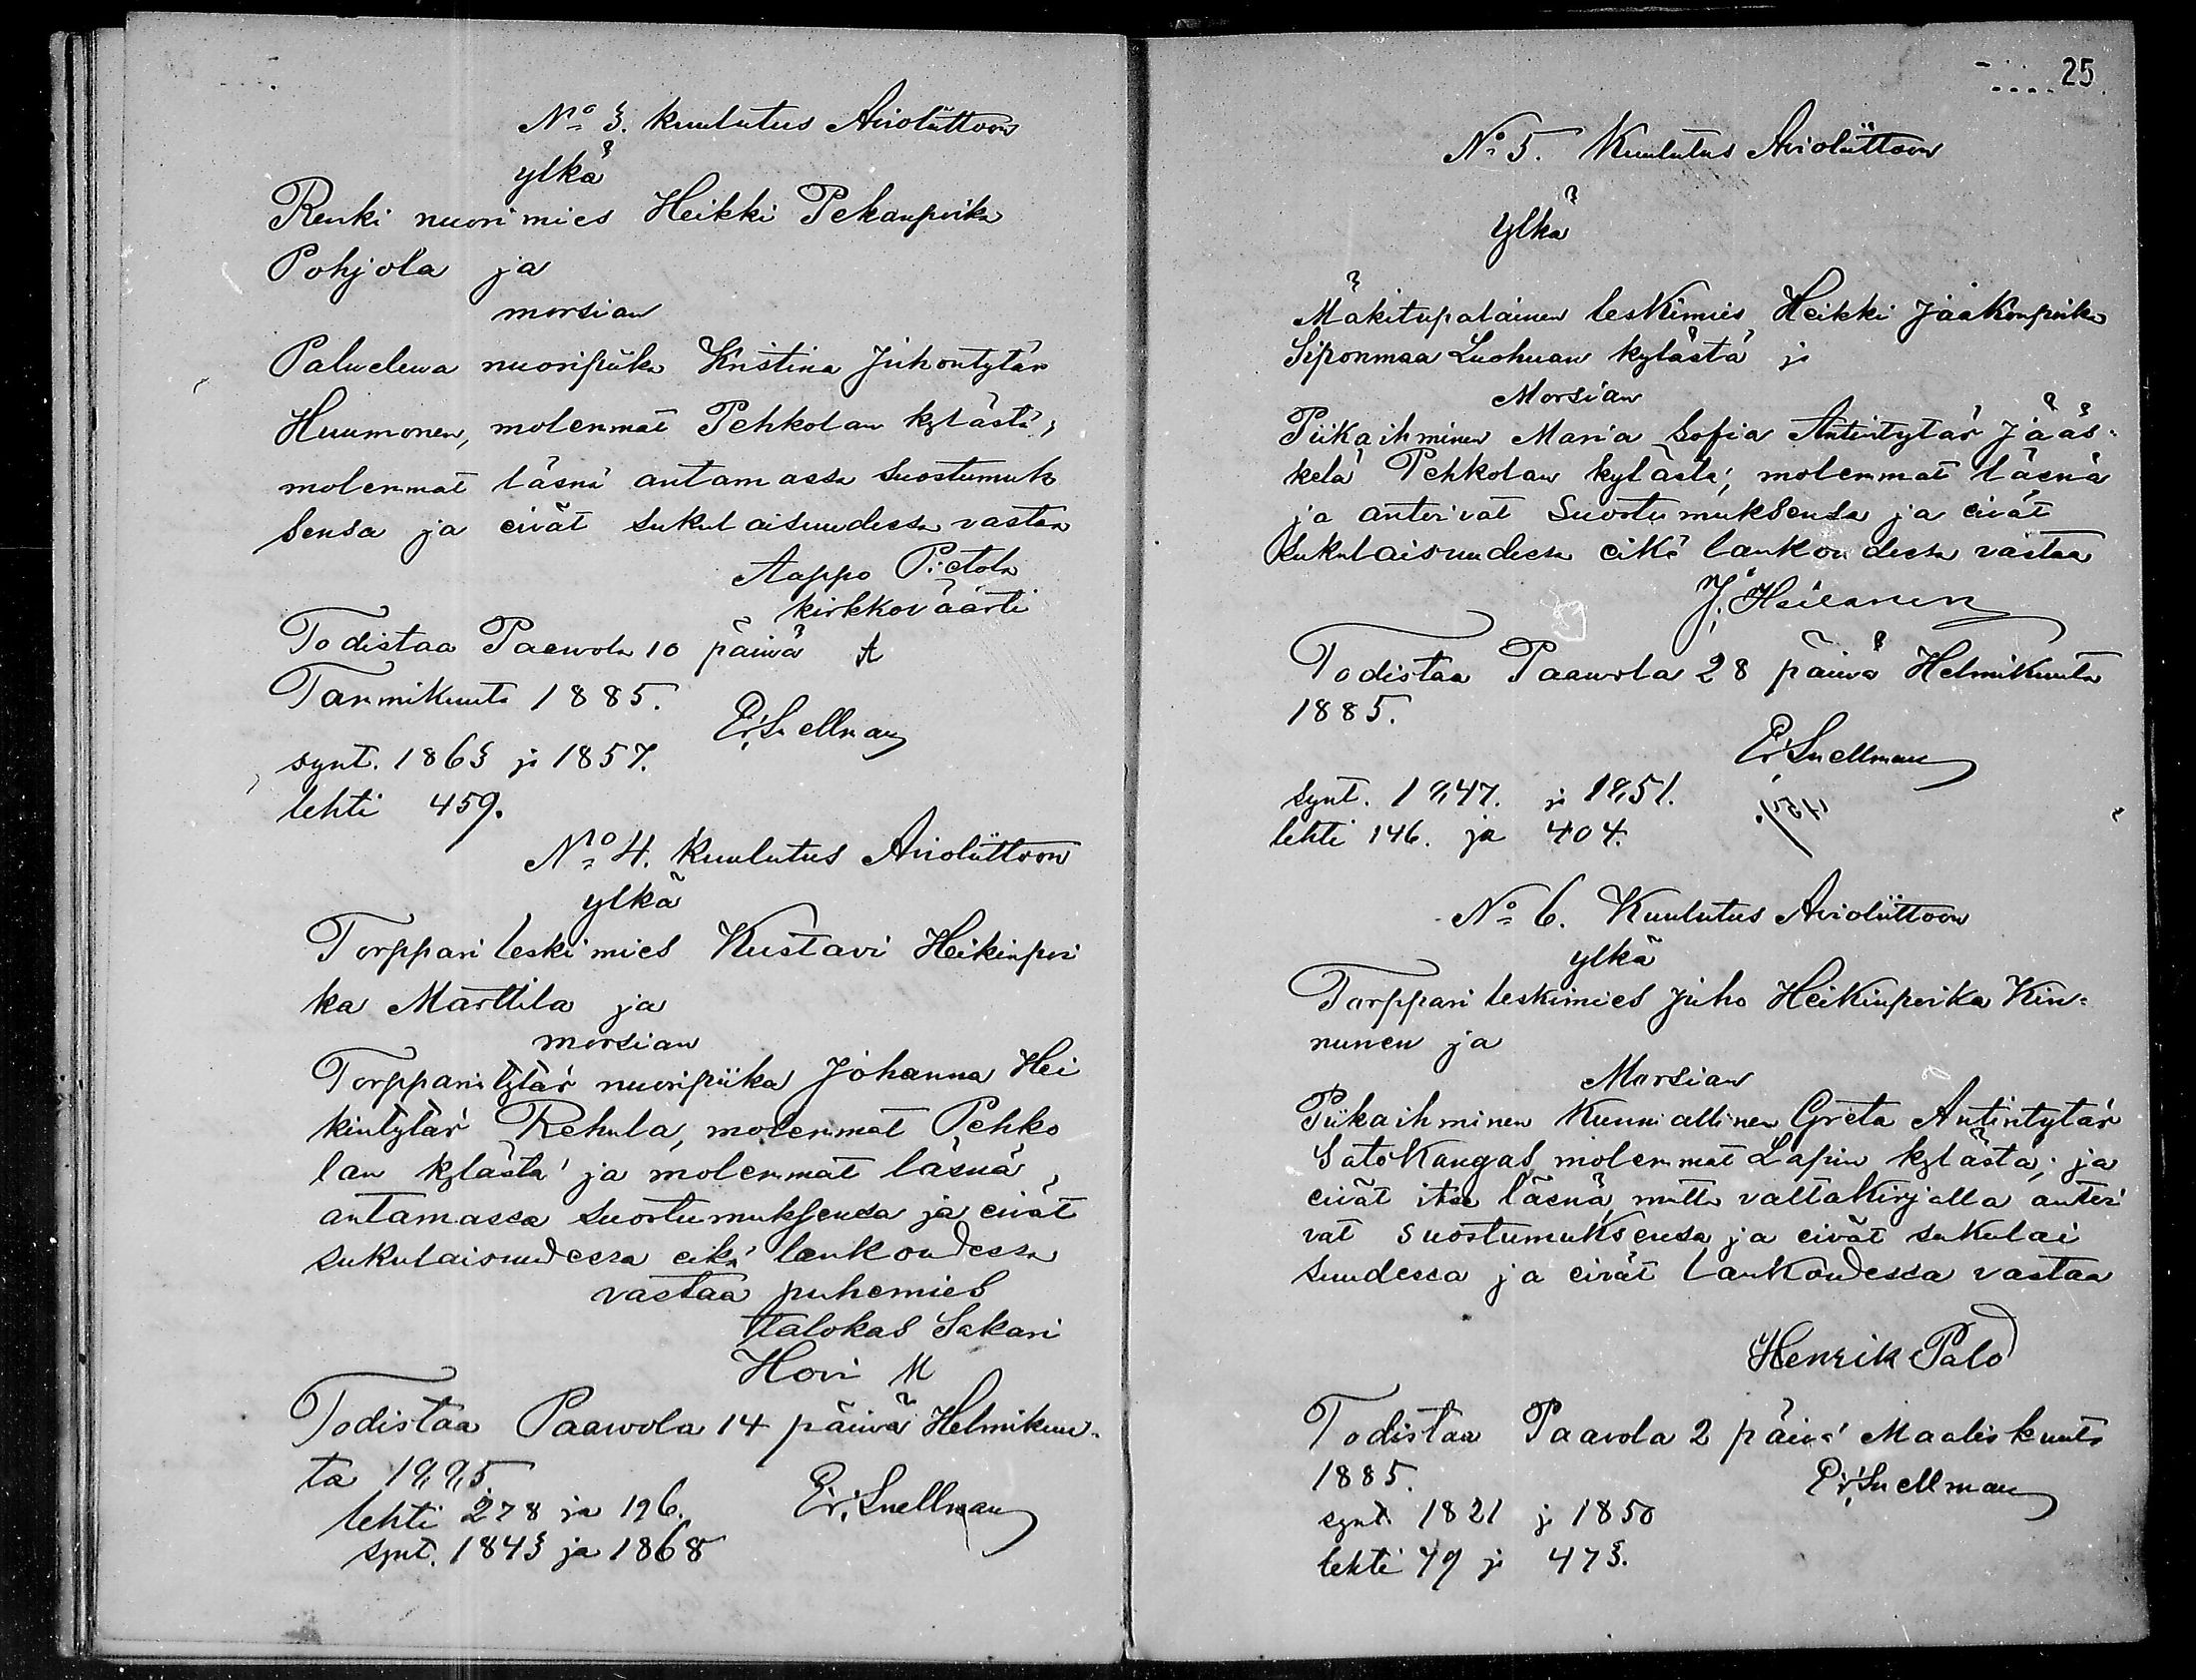 No 3. Kuulutus Avioliittoon
ylkä
Renki nuorimies Heikki Pekanpoika
Pohjola ja
morsian
Palvelewa nuoripiika Kristina Juhontytär
Huumonen, molemmat Pehkolan kylästä,
molemmat läsnä antamassa suostumuk
sensa ja eivät sukulaisuudessa vastaa
Aappo Pietola
kirkkoväärti
Todistaa Paawola 10 päivä
Tammikuuta 1885.
Er. Snellman
synt. 1863 ja 1857.
lehti 459.
No 4. Kuulutus Avioliittoon
ylkä
Torppari leskimies Kustavi Heikinpoi
ka Marttila ja
morsian
Torpparintytär nuoripiika Johanna Hei
kintytär Rehula, molemmat Pehko
lan kylästä ja molemmat läsnä,
antamassa suostumuksensa ja eivät
sukulaisuudessa eikä lankoudessa
vastaa puhemies
talokas Sakari
Hovi
Todistaa Paawola 14 päivä Helmikuu-
ta 1885.
Er. Snellman
lehti 278 ja 196.
synt. 1843 ja 1868
25
No 5. Kuulutus Avioliittoon
ylkä
Mäkitupalainen leskimies Heikki Jaakonpoika
Siponmaa Luohuan kylästä ja
Morsian
Piikaihminen Maria Sofia Antintytär Jääs-
kelä Pehkolan kylästä, molemmat läsnä
ja anterivat suostumuksensa ja eivät
sukulaisuudessa eikä lankoudessa vastaa
Todistaa Paawola 28 päivä Helmikuuta
1885.
Er. Snellman
synt. 1847. ja 1851.
lehti 146. ja 404.
No 6. Kuulutus Avioliittoon
ylkä
Torppari leskimies Juho Heikinpoika Kin-
nunen ja
Morsian
Piikaihminen Kunniallinen Greta Antintytär
Satokangas molemmat Lapin kylästä, ja
eivät itse läsnä, mutta valtakirjalla anteri
vat suostumuksensa ja eivät sukulai
suudessa ja eivät lankoudessa vastaa
Henrik Palo
Todistaa Paavola 2 päivä Maaliskuuta
1885.
Er. Snellman
synt. 1821 ja 1850
lehti 79 ja 473.